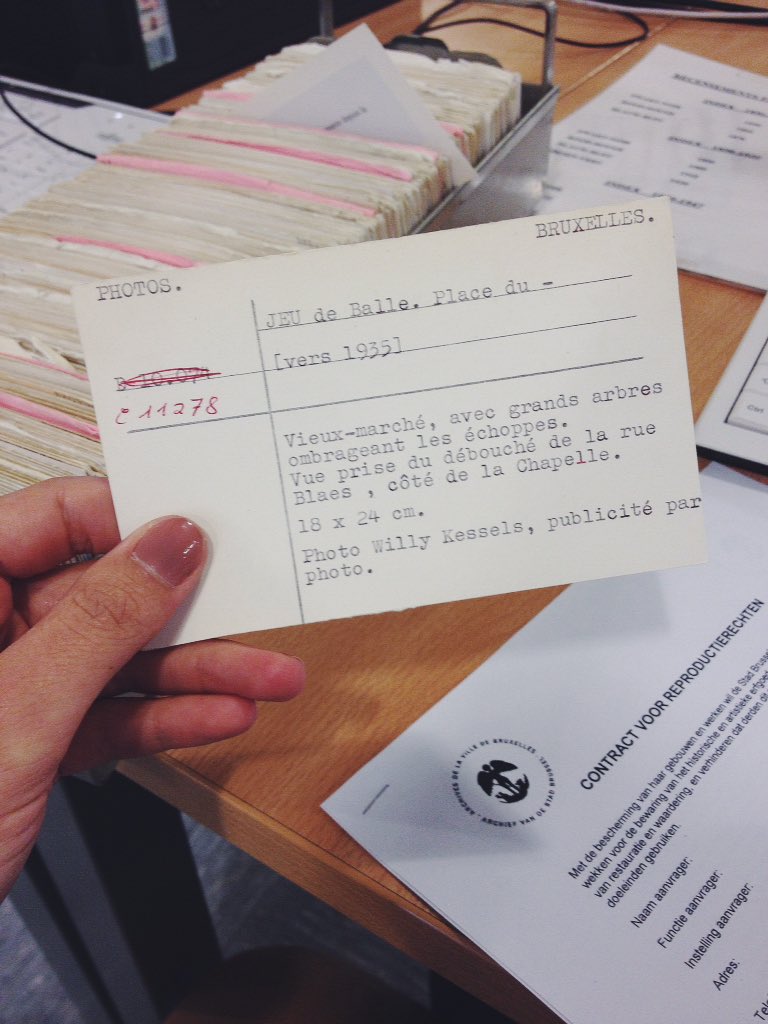 PHOTOS.
BRUXELLES.
JEU de Balle. Place du -
[vers 1935]
E 11278
Vieux-marché, avec grands arbres
ombrageant les échoppes.
Vue prise du débouché de la rue
Blaes , côté de la Chapelle.
18 x 24 cm.
Photo Willy Kessels, publicité par
photo.
ARCHIVES DE LA VILLE DE BRUXELLES
ARCHIEF VAN DE STAD BRUSSEL
CONTRACT VOOR REPRODUCTIERECHTEN
Met de bescherming van haar gebouwen en werken wil de Stad
wekken voor de bewaring van het historische en artistieke erfgoed
van restauratie en waardering, en verhinderen dat derden dit
doeleinden gebruiken.
Naam aanvrager:
Functie aanvrager:
Instelling aanvrager:
Adres:
Ctrl